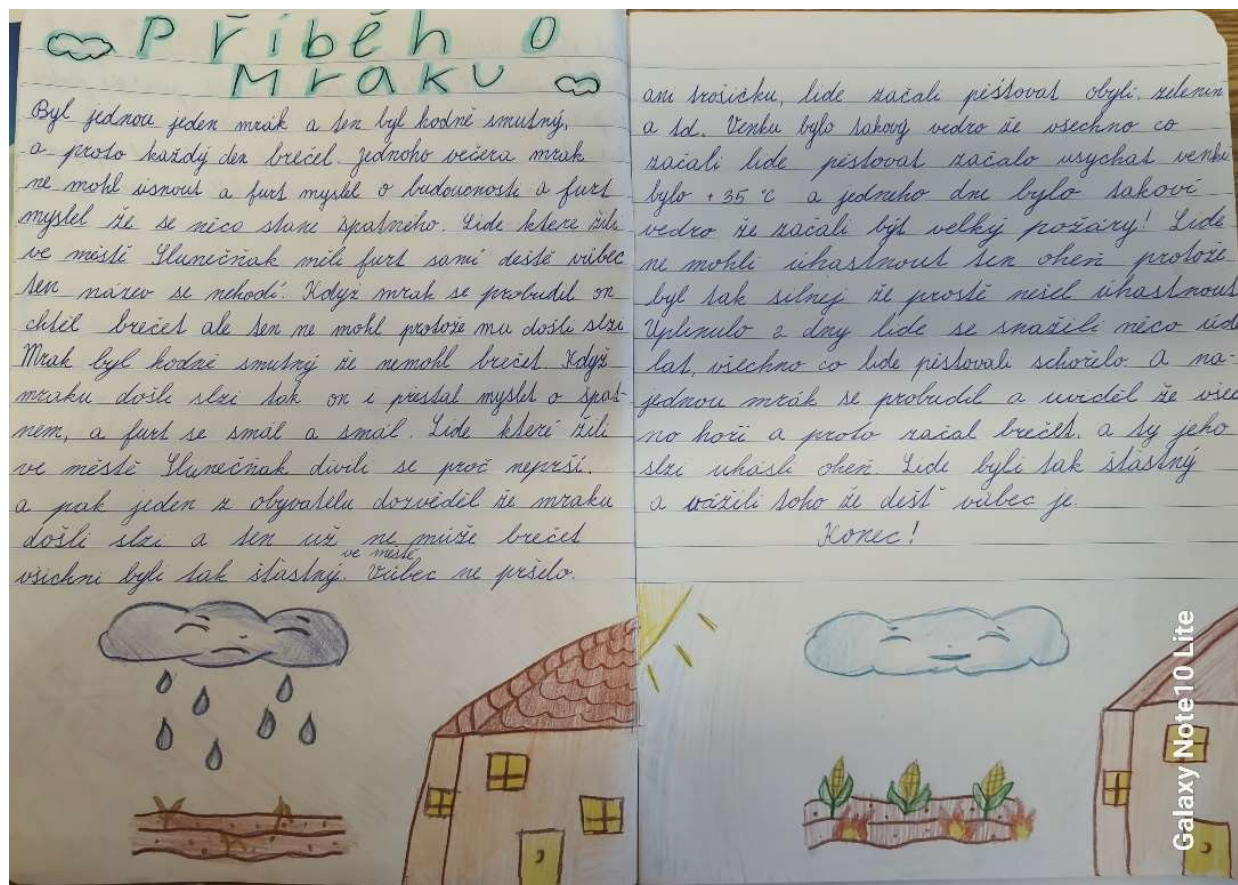 Příběh o
Mraku
Byl jednou jeden mrák a ten byl hodně smutný,
a proto každý den brečel. Jednoho večera mrak
ne mohl usnout a furt myslel o budoucnosti a furt
myslel že se něco stane špatneho. Lide ktere žili
ve městě Slunečňak měli furt samí deště vúbec
ten název se nehodí. Když mrak se probudil on
chtěl brečet ale ten ne mohl protože mu došli slzi
Mrak byl hodně smutný že nemohl brečet. Když
mraku došli slzi tak on i přestal myslet o špat-
nem, a furt se smál a smál. Lide které žili
ve městě Slunečňak divili se proč neprší.
a pak jeden z obyvatelu dozvěděl že mraku
došli slzi a ten už ne múže brečet
ve městě
všichni byli tak štastný. Vúbec ne pršelo.
ani trošičku, lide začali péstovat obyli, zelenin
a td. Venku bylo takový vedro že všechno co
začali lide péstovat začalo usychat venku
bylo +35 °C a jedneho dne bylo takoví
vedro že začali být velký požáry! Lide
ne mohli uhastnout ten oheň protože
byl tak silnej že prostě nešel uhastnout
Uplinulo 2 dny lide se snažili něco úd
lat, všechno co lide péstovali schořelo. A na-
jednou mrák se probudil a uviděl že všec
no hoří a proto začal brečet, a ty jeho
slzi uhásli oheň. Lide byli tak štastný
a vážili toho že dešť vúbec je.
Konec!
Galaxy Note10 Lite